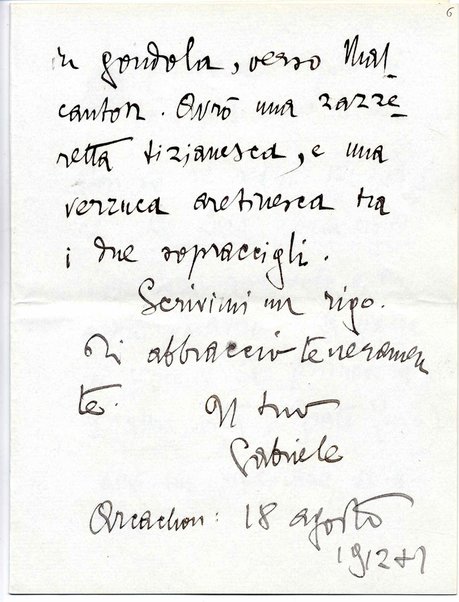 6
in gondola, verso Mal-
canton. Avrò una zazze-
retta tizianesca, e una
verruca aretinesca tra
i due sopraccigli.
Scrivimi un rigo.
Ti abbraccio teneramen
te. Il tuo
Gabriele
Arcachon: 18 agosto
1912+1